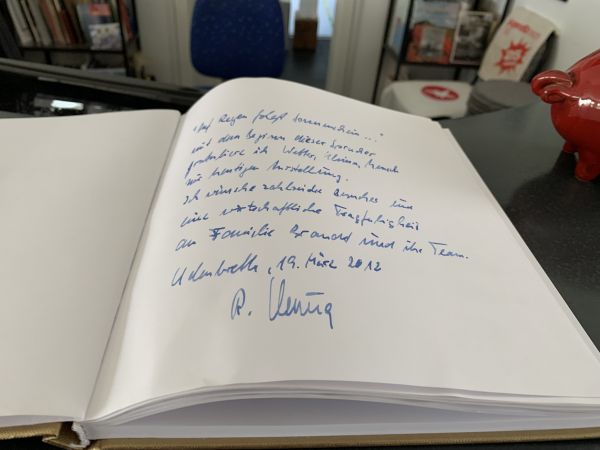 "Auf Regen folgt Sonnenschein..."
mit dem Beginn dieser
gratuliere ich Wetter, Klima, Mensch
zur heutigen Ausstellung.
Ich wünsche zahlreiche Besucher und
eine wirtschaftliche Tragfähigkeit
an Familie Brandt und ihr Team.
, 19. März 2012
R.